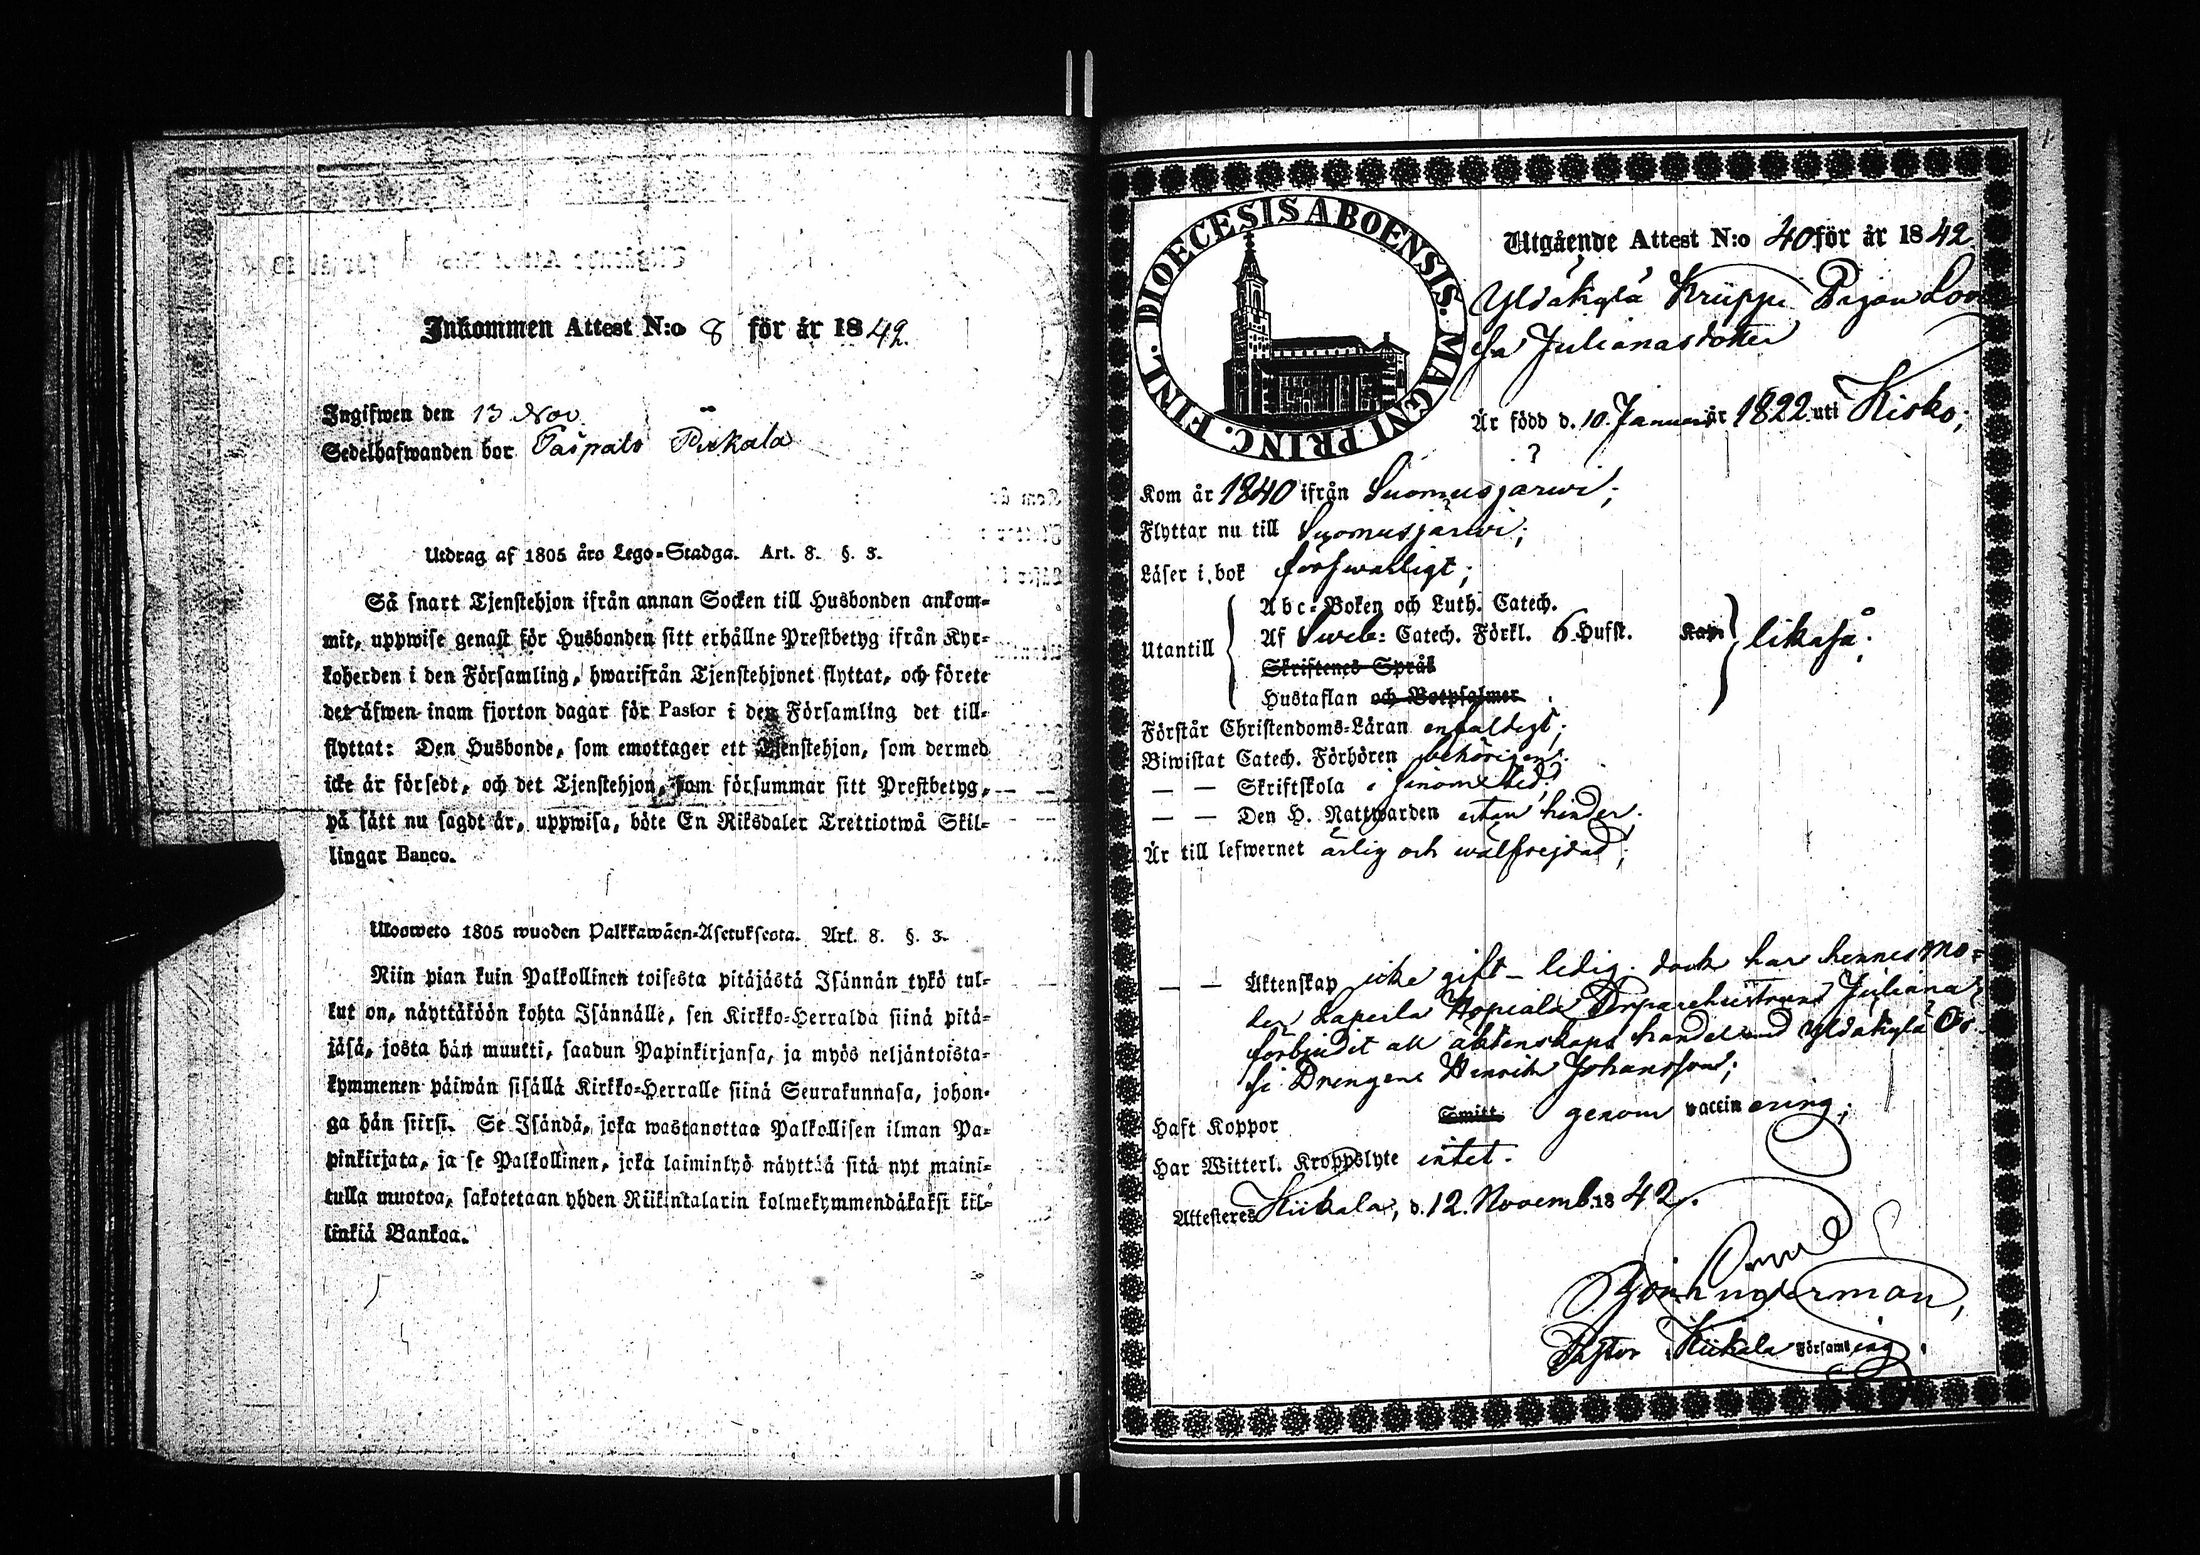 Inkommen Attest N:o 8 för år 1842.
Ingifwen den 13 Nov.
Sedelhafwanden bor Taipals Pirkala
Utdrag af 1805 års Lego-Stadga. Art. 8. §. 3.
Så snart Tjenstehjon ifrån annan Socken till Husbonden ankom-
mit, uppwise genast för Husbonden sitt erhållne Prestbetyg ifrån Kyr-
koherden i den Församling, hwarifrån Tjenstehjonet flyttat, och förete
det äfwen inom fjorton dagar för Pastor i den Församling det till-
flyttat: Den Husbonde, som emottager ett Tjenstehjon, som dermed
icke är försedt, och det Tjenstehjon, som försummar sitt Prestbetyg,
på sätt nu sagdt är, uppwisa, böte En Riksdaler Trettiotwå Skil-
lingar Banco.
Ulosweto 1805 wuoden Palkkawäen-Asetuksesta. Art. 8. §. 3.
Niin pian kuin Palkollinen toisesta pitäjästä Isännän tykö tul-
lut on, näyttäköön kohta Isännälle, sen Kirkko-Herralda siinä pitä-
jäsä, josta hän muutti, saadun Papinkirjansa, ja myös neljäntoista-
kymmenen päiwän sisällä Kirkko-Herralle siinä Seurakunnasa, johon-
ga hän siirsi. Se Isändä, joka wastanottaa Palkollisen ilman Pa-
pinkirjata, ja se Palkollinen, joka laiminlyö näyttää sitä nyt maini-
tulla muotoa, sakotetaan yhden Riikintalarin kolmekymmendäkaksi kil-
linkiä Bankoa.
DIOECESIS ABOENSIS. MAGNI PRINC. FINL.
Utgående Attest N:o 40 för år 1842.
Yldäkylä Krüppi Pigan Lovi
sa Julianasdotter
Är född d. 10. Januarii år 1822. uti Kisko;
?
Kom år 1840 ifrån Suomusjärwi;
Flyttar nu till Suomusjärwi;
Läser i bok förswarligt;
Abc-Boken och Luth. Catech.
Utantill Af Sweb: Catech. Förkl. 6 Hufst. Kap. likaså;
Skriftenes Språk
Hustaflan och Botpsalmer
Förstår Christendoms-Läran enfaldigt;
Biwistat Catech. Förhören behörigen;
— — Skriftskola i sinom tid;
— — Den H. Nattwarden utan hinder.
Är till lefwernet ärlig och wälfrejdad;
— — Äktenskap icke gift – ledig. dock har hennes Mo-
der Laperla Hopiala Torparehustrun Juliana
förbjudit all äktenskaps handel med Yldäkylä Os-
si Drengen Henrik Johansson;
Haft Koppor Smitt. genom vaccinering;
Har Witterl. Kroppslyte intet.
Attesteres Kiikala, d. 12. Novemb. 1842.
Pastor i Kiikala Församling.